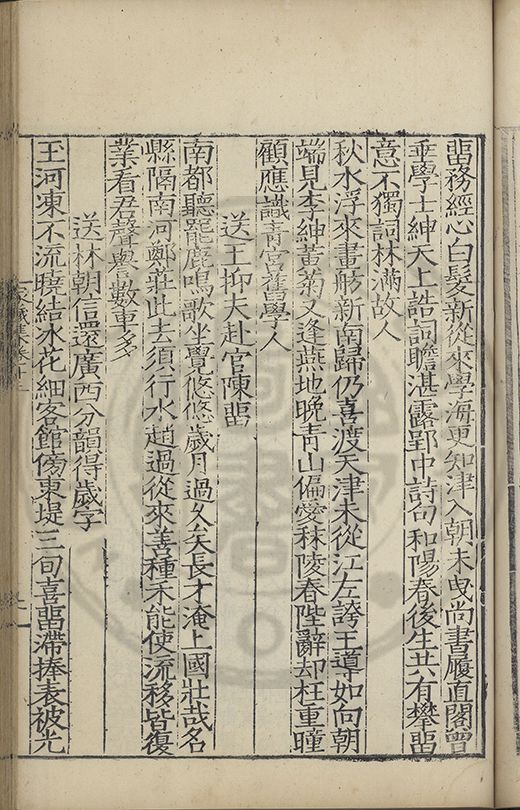 畱務經心白髮新從來學海更知津入朝未曳尚書履直閣曾
垂學士紳天上誥詞瞻湛露郢中詩句和陽春後生共有攀畱
意不獨詞林滿故人
秋水浮來畫舫新南歸仍喜渡天津未從江左誇王導如向朝
端見李紳黃菊又逢燕地晚青山偏愛秣陵春陛辭却枉重瞳
顧應識青宮舊學人
送王抑夫赴官陳畱
南都聽罷鹿鳴歌坐覺悠悠歲月過久矣長才淹上國壯哉名
縣隔南河鄭莊此去須行水趙過從來善種禾能使流移皆復
業看君聲譽數車多
送林朝信還廣西分韻得歲字
玉河凍不流曉結冰花細客館傍東堤三旬喜畱滯捧表被光